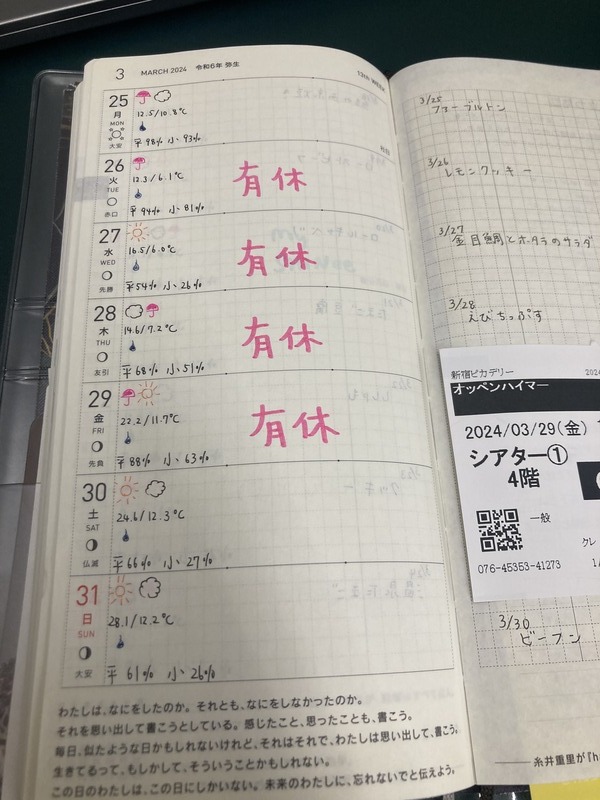 3 MARCH 2024 令和6年 弥生
13th WEEK
25
月
MON
大安
12.5/10.8℃
平98% 小93%
26
火
TUE
赤口
12.3/6.1℃
平94% 小81%
有休
27
水
WED
先勝
16.5/6.0℃
平54% 小26%
有休
28
木
THU
友引
14.6/7.2℃
平68% 小51%
有休
29
金
FRI
先負
22.2/11.7℃
平88% 小63%
有休
30
土
SAT
仏滅
24.6/12.3℃
平66% 小27%
31
日
SUN
大安
28.1/12.2℃
平61% 小26%
わたしは、なにをしたのか。それとも、なにをしなかったのか。
それを思い出して書こうとしている。感じたこと、思ったことも、書こう。
毎日、似たような日かもしれないけれど、それはそれで、わたしは思い出して、書こう。
生きてるって、もしかして、そういうことかもしれない。
この日のわたしは、この日にしかいない。未来のわたしに、忘れないでと伝えよう。
3/25
フォーブルトン
3/26
レモンクッキー
3/27
金目鯛とホタテのサラダ
3/28
えびちっぷす
新宿ピカデリー
2024
オッペンハイマー
2024/03/29(金)
シアター①
4階
一般
クレ
076-45353-41273
3/30
ビーフン
糸井重里が『h